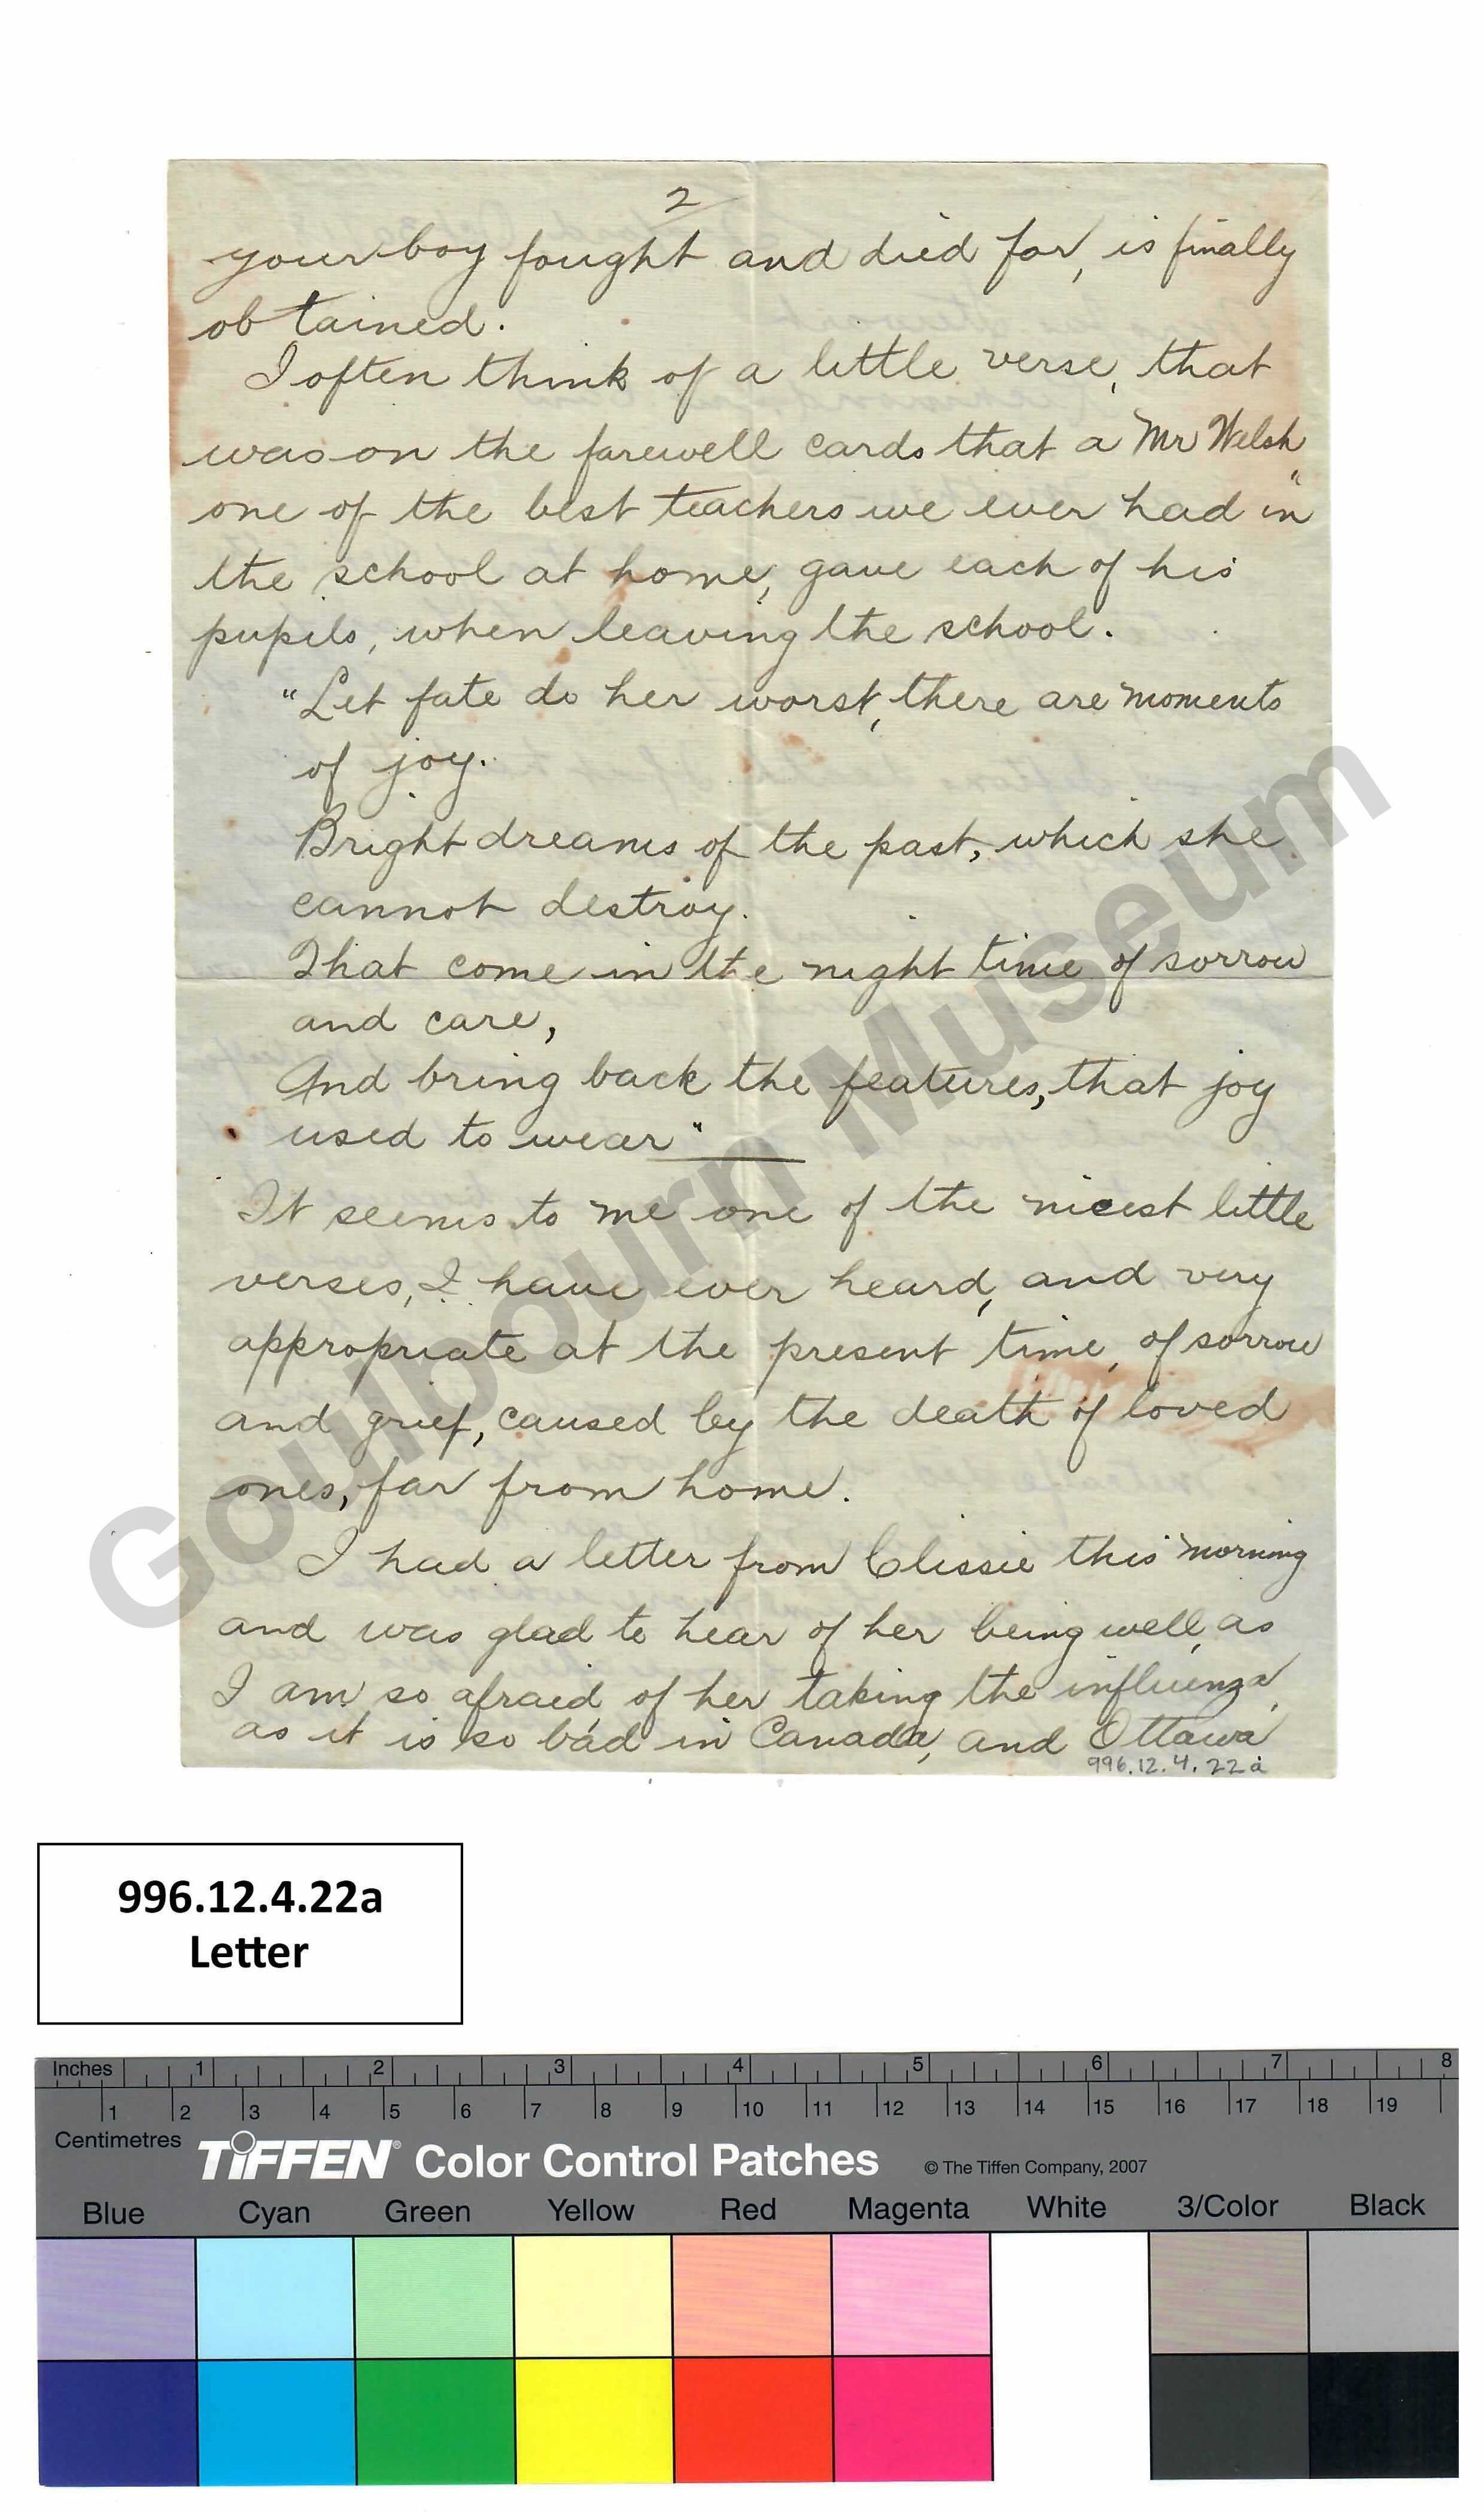 2
your boy fought and died for, is finally
obtained.
I often think of a little verse, that
was on the farewell cards that a Mr Welsh
"one of the best teachers we ever had in
the school at home, gave each of his
pupils, when leaving the school.
"Let fate do her worst, there are moments
of joy.
Bright dreams of the past, which she
cannot destroy.
That come in the night time of sorrow
and care,
And bring back the features, that joy
used to wear"
It seems to me one of the nicest little
verses, I have ever heard, and very
appropriate at the present time, of sorrow
and grief, caused by the death of loved
ones, far from home.
I had a letter from Clissie this morning
and was glad to hear of her being well, as
I am so afraid of her taking the influenza,
as it is so bad in Canada, and Ottawa
996.12.4.22a
Goulbourn Museum
996.12.4.22a
Letter
Inches 1 2 3 4 5 6 7 8
1 2 3 4 5 6 7 8 9 10 11 12 13 14 15 16 17 18 19
Centimetres
TIFFEN® Color Control Patches © The Tiffen Company, 2007
Blue Cyan Green Yellow Red Magenta White 3/Color Black